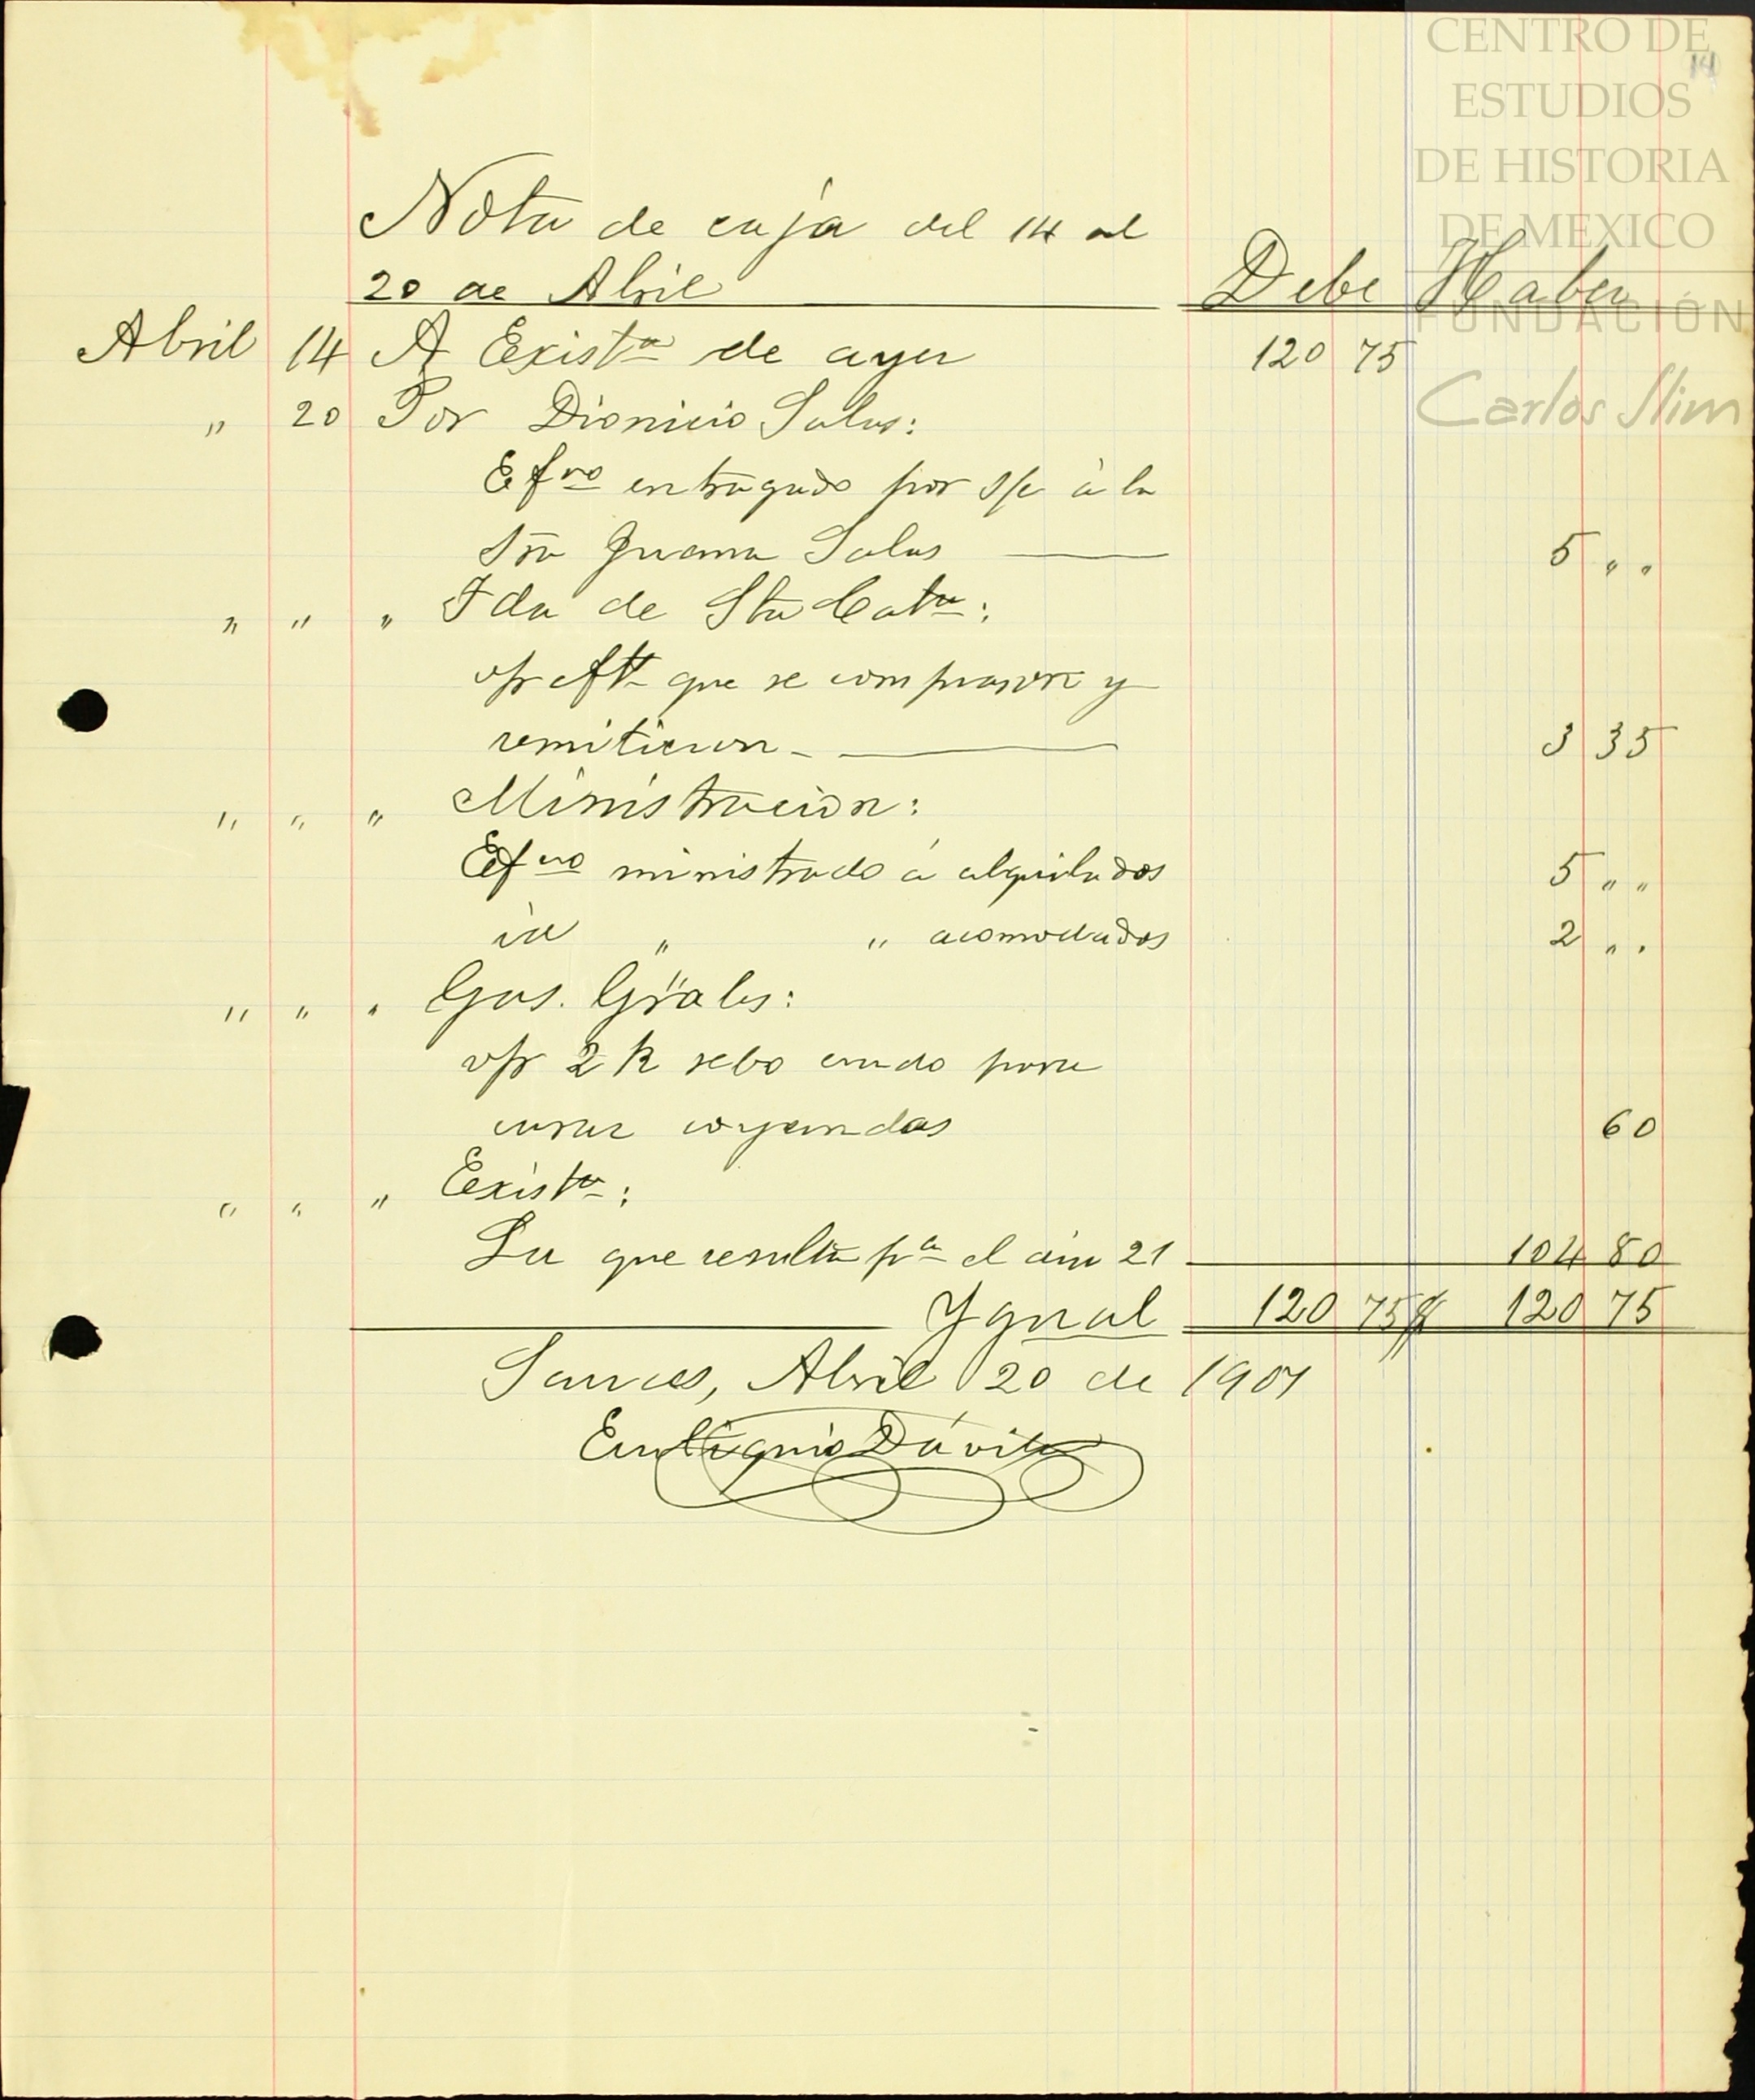 CENTRO DE
ESTUDIOS
DE HISTORIA
DE MEXICO
FUNDACIÓN
Carlos Slim
14
Nota de caja del 14 al
20 de Abril Debe Haber
Abril 14 A Exist.a de ayer 120 75
" 20 Por Dionicio Salas:
Ef.vo entregado por s/c á la
Sra Juana Salas 5 " "
" " " Fda de Sta Cat.a:
v/r que se compraron y
remitieron 3 35
" " " Ministracion:
Ef.vo ministrado á alquilados 5 " "
id " " acomodados 2 " "
" " " Gas. Grales:
v/r 2 K sebo crudo para
curar coyundas 60
" " " Exist.a:
La que resulta p.a el dia 21 104 80
Ygual 120 75 120 75
Sauces, Abril 20 de 1907
Eutiquio Dávila